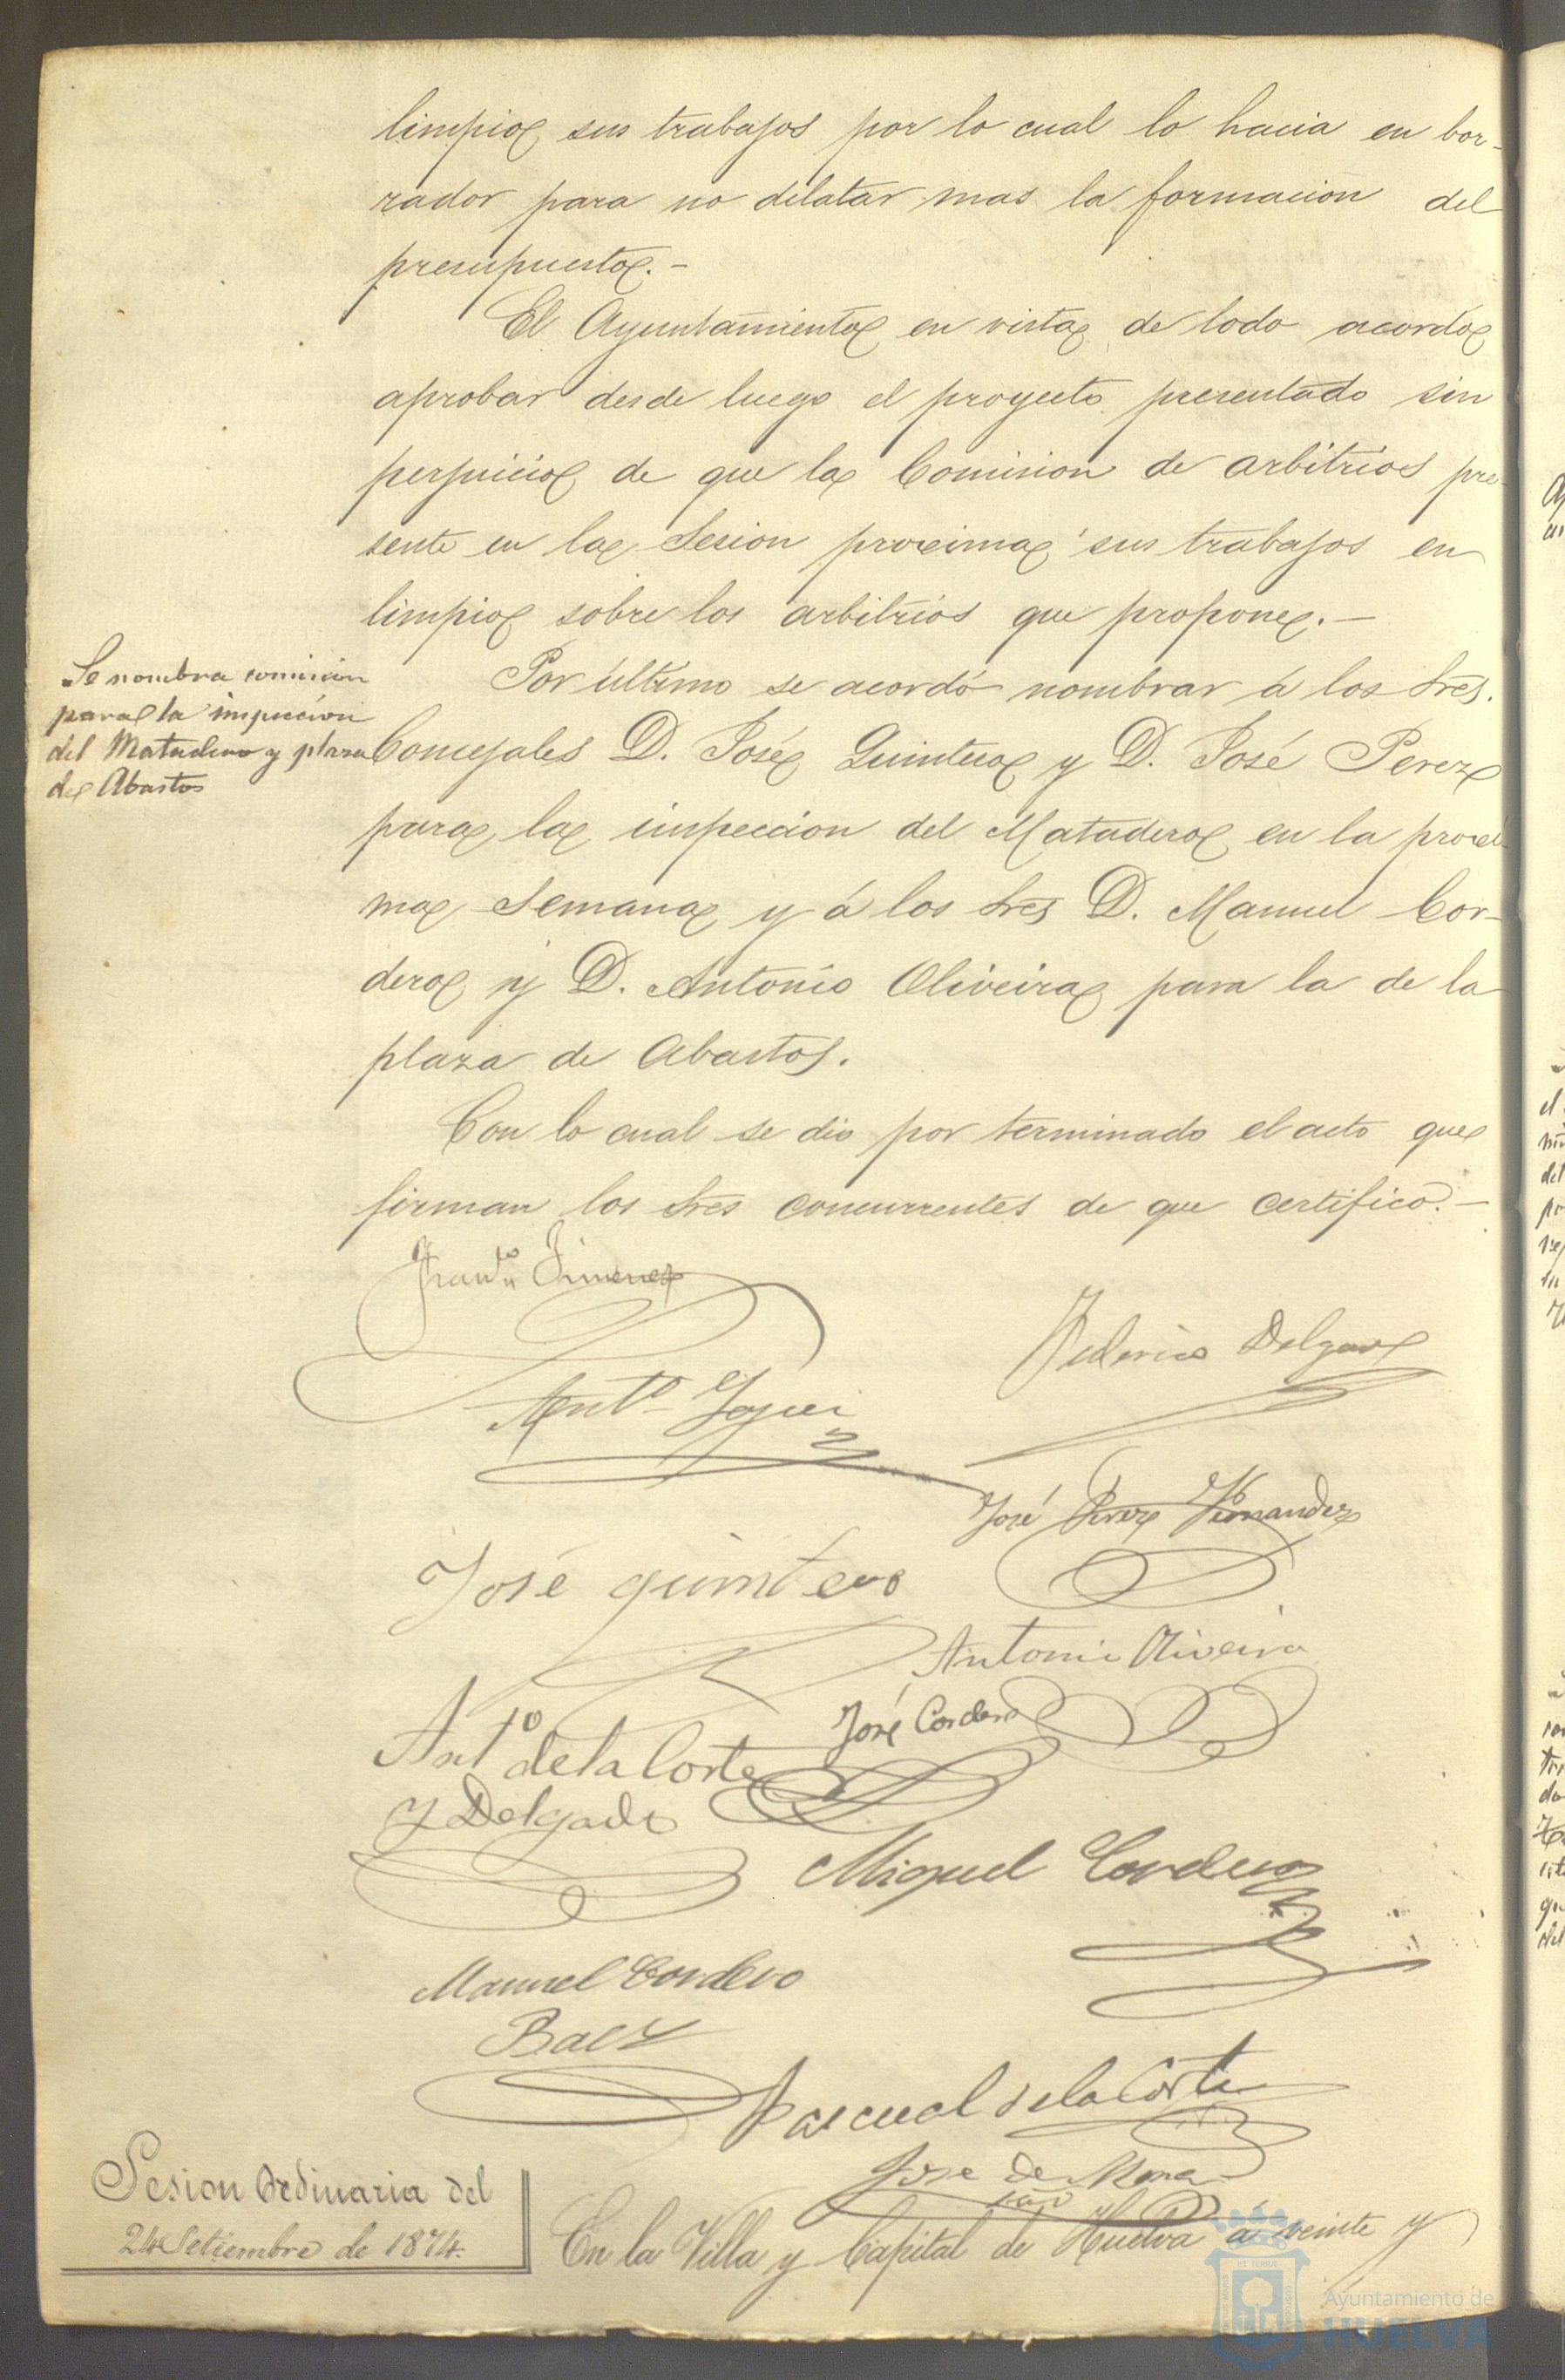 limpio sus trabajos por lo cual lo hacia en bor-
rador para no dilatar mas la formacion del
presupuesto.-
El Ayuntamiento en vista de todo acordó
aprobar desde luego el proyecto presentado sin
perjuicio de que la Comision de arbitrios pre-
sente en la Sesion proxima sus trabajos en
limpio sobre los arbitrios que propone.-
Se nombra comision
para la inspeccion
del Matadero y plaza
de Abastos
Por último se acordó nombrar á los Sres.
Concejales D. José Quintero y D. José Perez
para la inspeccion del Matadero en la proxi-
ma Semana y á los Sres D. Manuel Cor-
dero y D. Antonio Oliveira para la de la
plaza de Abastos.
Con lo cual se dio por terminado el acto que
firman los Sres concurrentes de que certifico.-
Franco Jimenez
Federico Delgado
Anto
José Perez Fernandez
José quintero
Antonio Oliveira
José Cordero
Anto de la Corte
y Delgado
Miguel Cordero
Manuel Cordero
Baez
Pascual de la Corte
José de Mora
Srio
Sesion Ordinaria del
24 Setiembre de 1874.
En la Villa y Capital de Huelva á veinte y
Ayuntamiento de
HUELVA